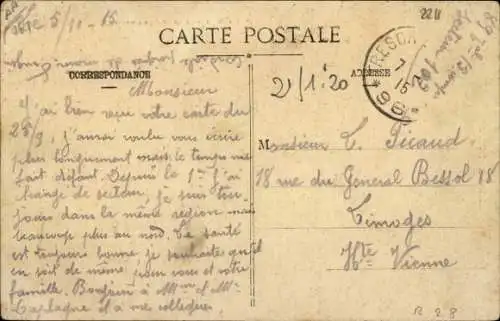 5/11-15
2211
CARTE POSTALE
CORRESPONDANCE
ADRESSE
2)/1.20
TRESOR
7
15
* 98 *
Monsieur
J'ai bien reçu votre carte du
25/9, j'aurai voulu vous écrire
plus longuement mais le temps me
fait défaut. Depuis le 1er j'ai
changé de secteur, je suis tou-
jours dans la même région mais
beaucoup plus au nord. La santé
est toujours bonne, je souhaite qu'il
en soit de même pour vous et votre
famille. Bonjour à Mme et Mr
Laplagne et à mes collègues.
Monsieur C. Picaud
18 rue du General Bessol 18
Limoges
Hte Vienne
R 28